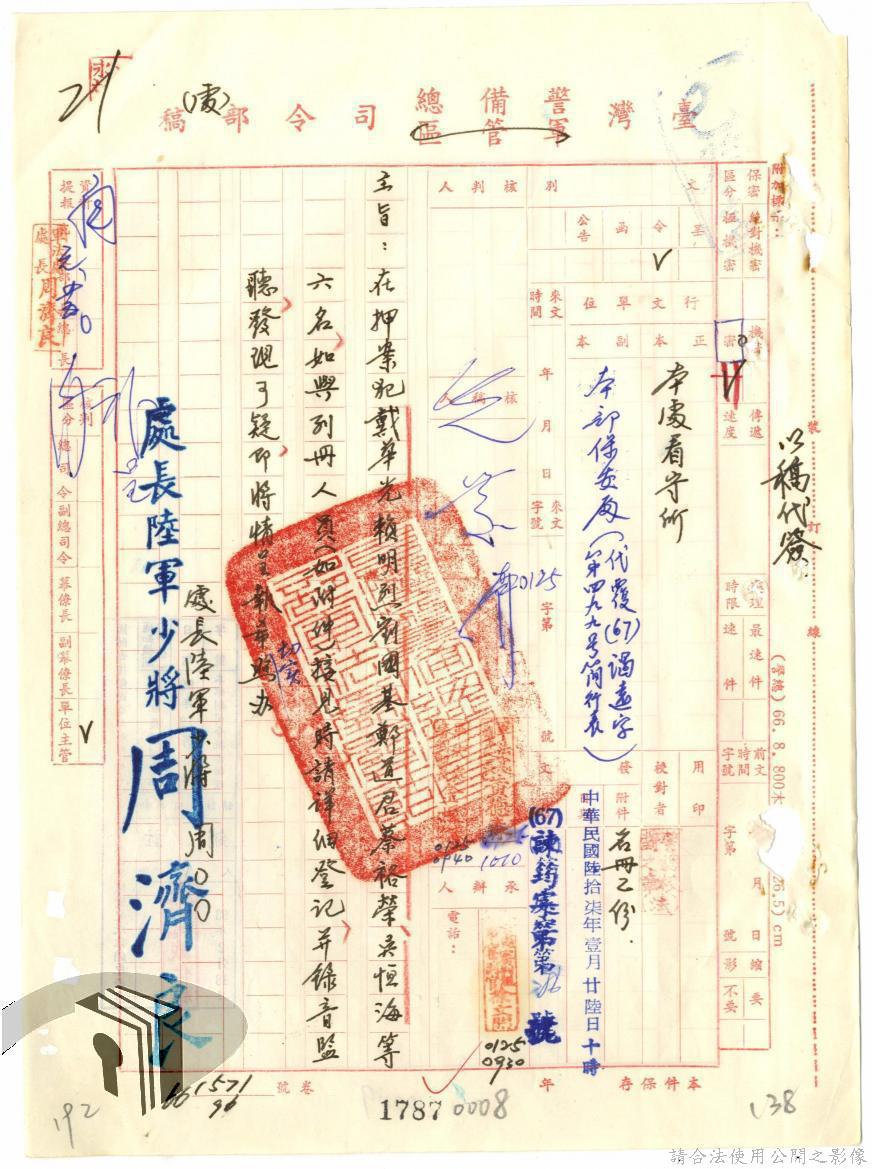 永
21
(處)
臺灣警備總司令部稿
軍管區
附加標示：
保密區分
絕對機密
極機密
機密
密
V
傳遞速度
處理時限
最速件
速件
前文時間字號
年月日
字第號
縮影
要
不要
以稿代簽
裝訂線
(警總) 66.8.800本
26.5) cm
文別
令
V
函
公告
行文單位
正本
本處看守所
副本
本部保安處(代覆(67)謁遠字第四九九号簡行表)
來文時間
年月日
來文字號
字第號
用印
校對者
發文
附件
名冊乙份.
中華民國陸拾柒年壹月廿陸日十時
(67)諫筠案第
號
核判人
核稿人
0125
0125
0940
1010
承辦人
電話：
0125
0930
主旨：在押案犯戴華光賴明烈劉國基鄭道君蔡裕榮吳恒海等
六名如與列冊人員(如附件)接見時請詳細登記并錄音監
聽發現可疑即將情呈報
切實
處長陸軍少將 周〇〇
處長陸軍少將周濟良
資料提報
軍法處
處長周濟良
核判區分
總司令
副總司令
幕僚長
副幕僚長
單位主管
V
本件保存
年
卷號
1571
96
1787 0008
192
138
請合法使用公開之影像